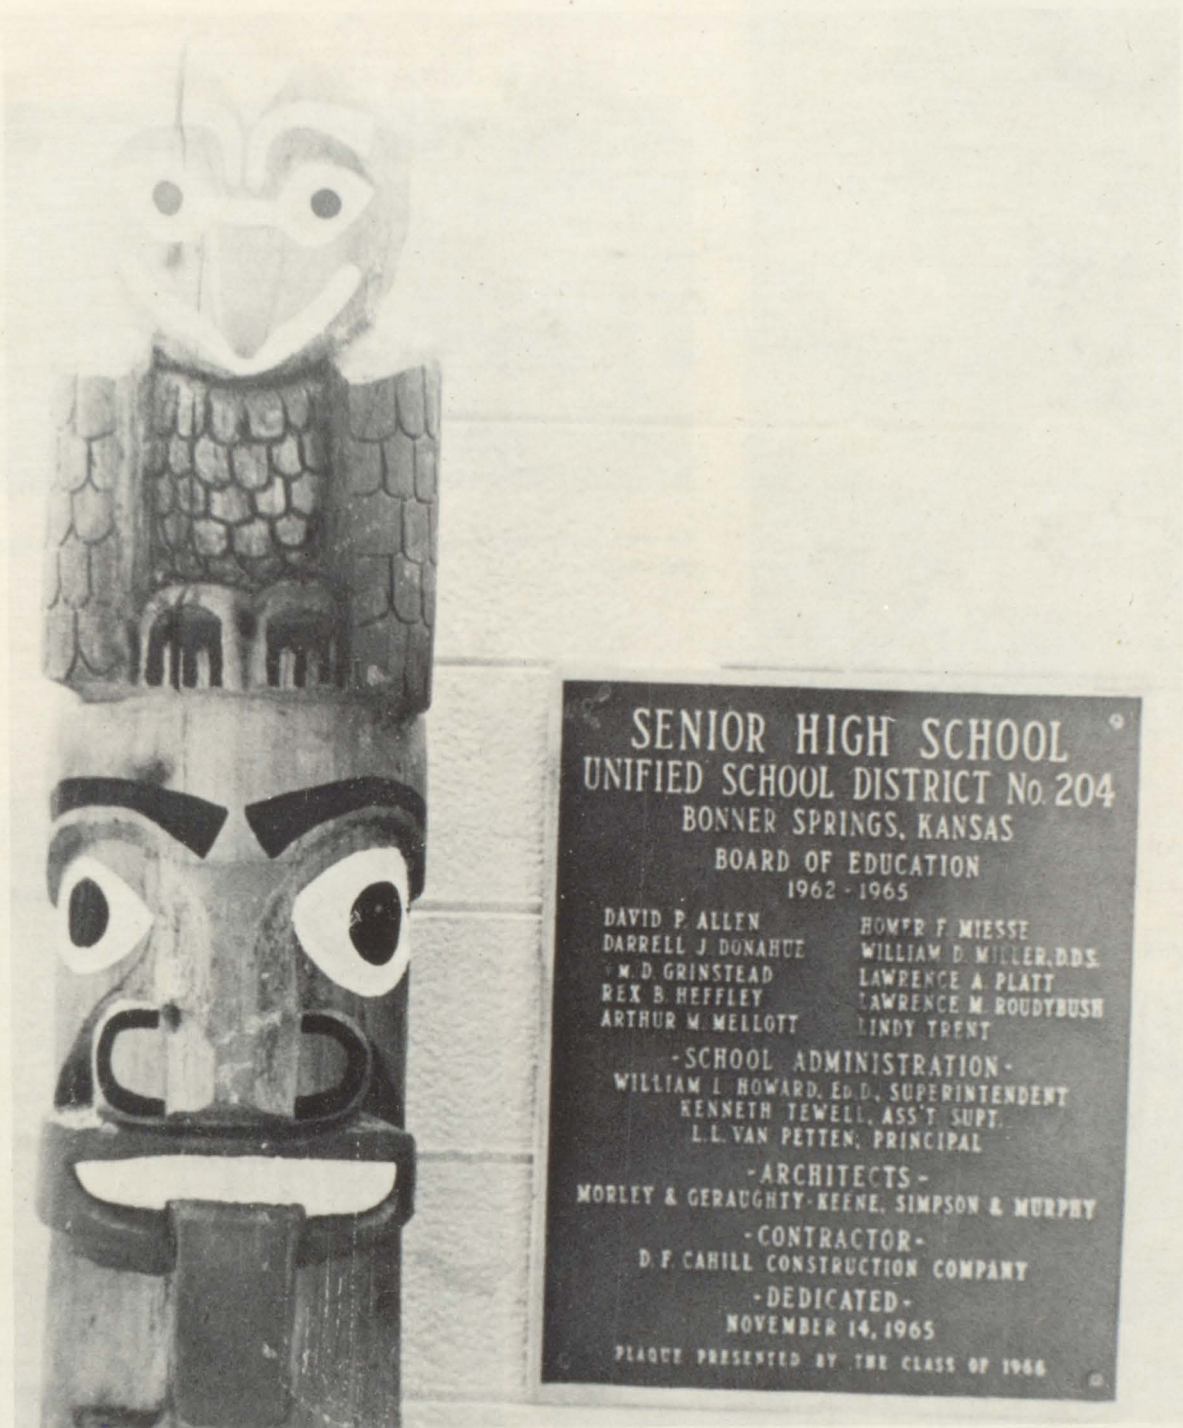 SENIOR HIGH SCHOOL
UNIFIED SCHOOL DISTRICT No. 204
BONNER SPRINGS, KANSAS
BOARD OF EDUCATION
1962 - 1965
DAVID P. ALLEN
DARRELL J. DONAHUE
WM. D. GRINSTEAD
REX B. HEFFLEY
ARTHUR M. MELLOTT
HOMER F. MIESSE
WILLIAM D. MILLER, D.D.S.
LAWRENCE A. PLATT
LAWRENCE M. ROUDYBUSH
LINDY TRENT
- SCHOOL ADMINISTRATION -
WILLIAM L. HOWARD, Ed.D., SUPERINTENDENT
KENNETH TEWELL, ASS'T SUPT.
L.L. VAN PETTEN, PRINCIPAL
- ARCHITECTS -
MORLEY & GERAUGHTY-KEENE, SIMPSON & MURPHY
- CONTRACTOR -
D. F. CAHILL CONSTRUCTION COMPANY
- DEDICATED -
NOVEMBER 14, 1965
PLAQUE PRESENTED BY THE CLASS OF 1966